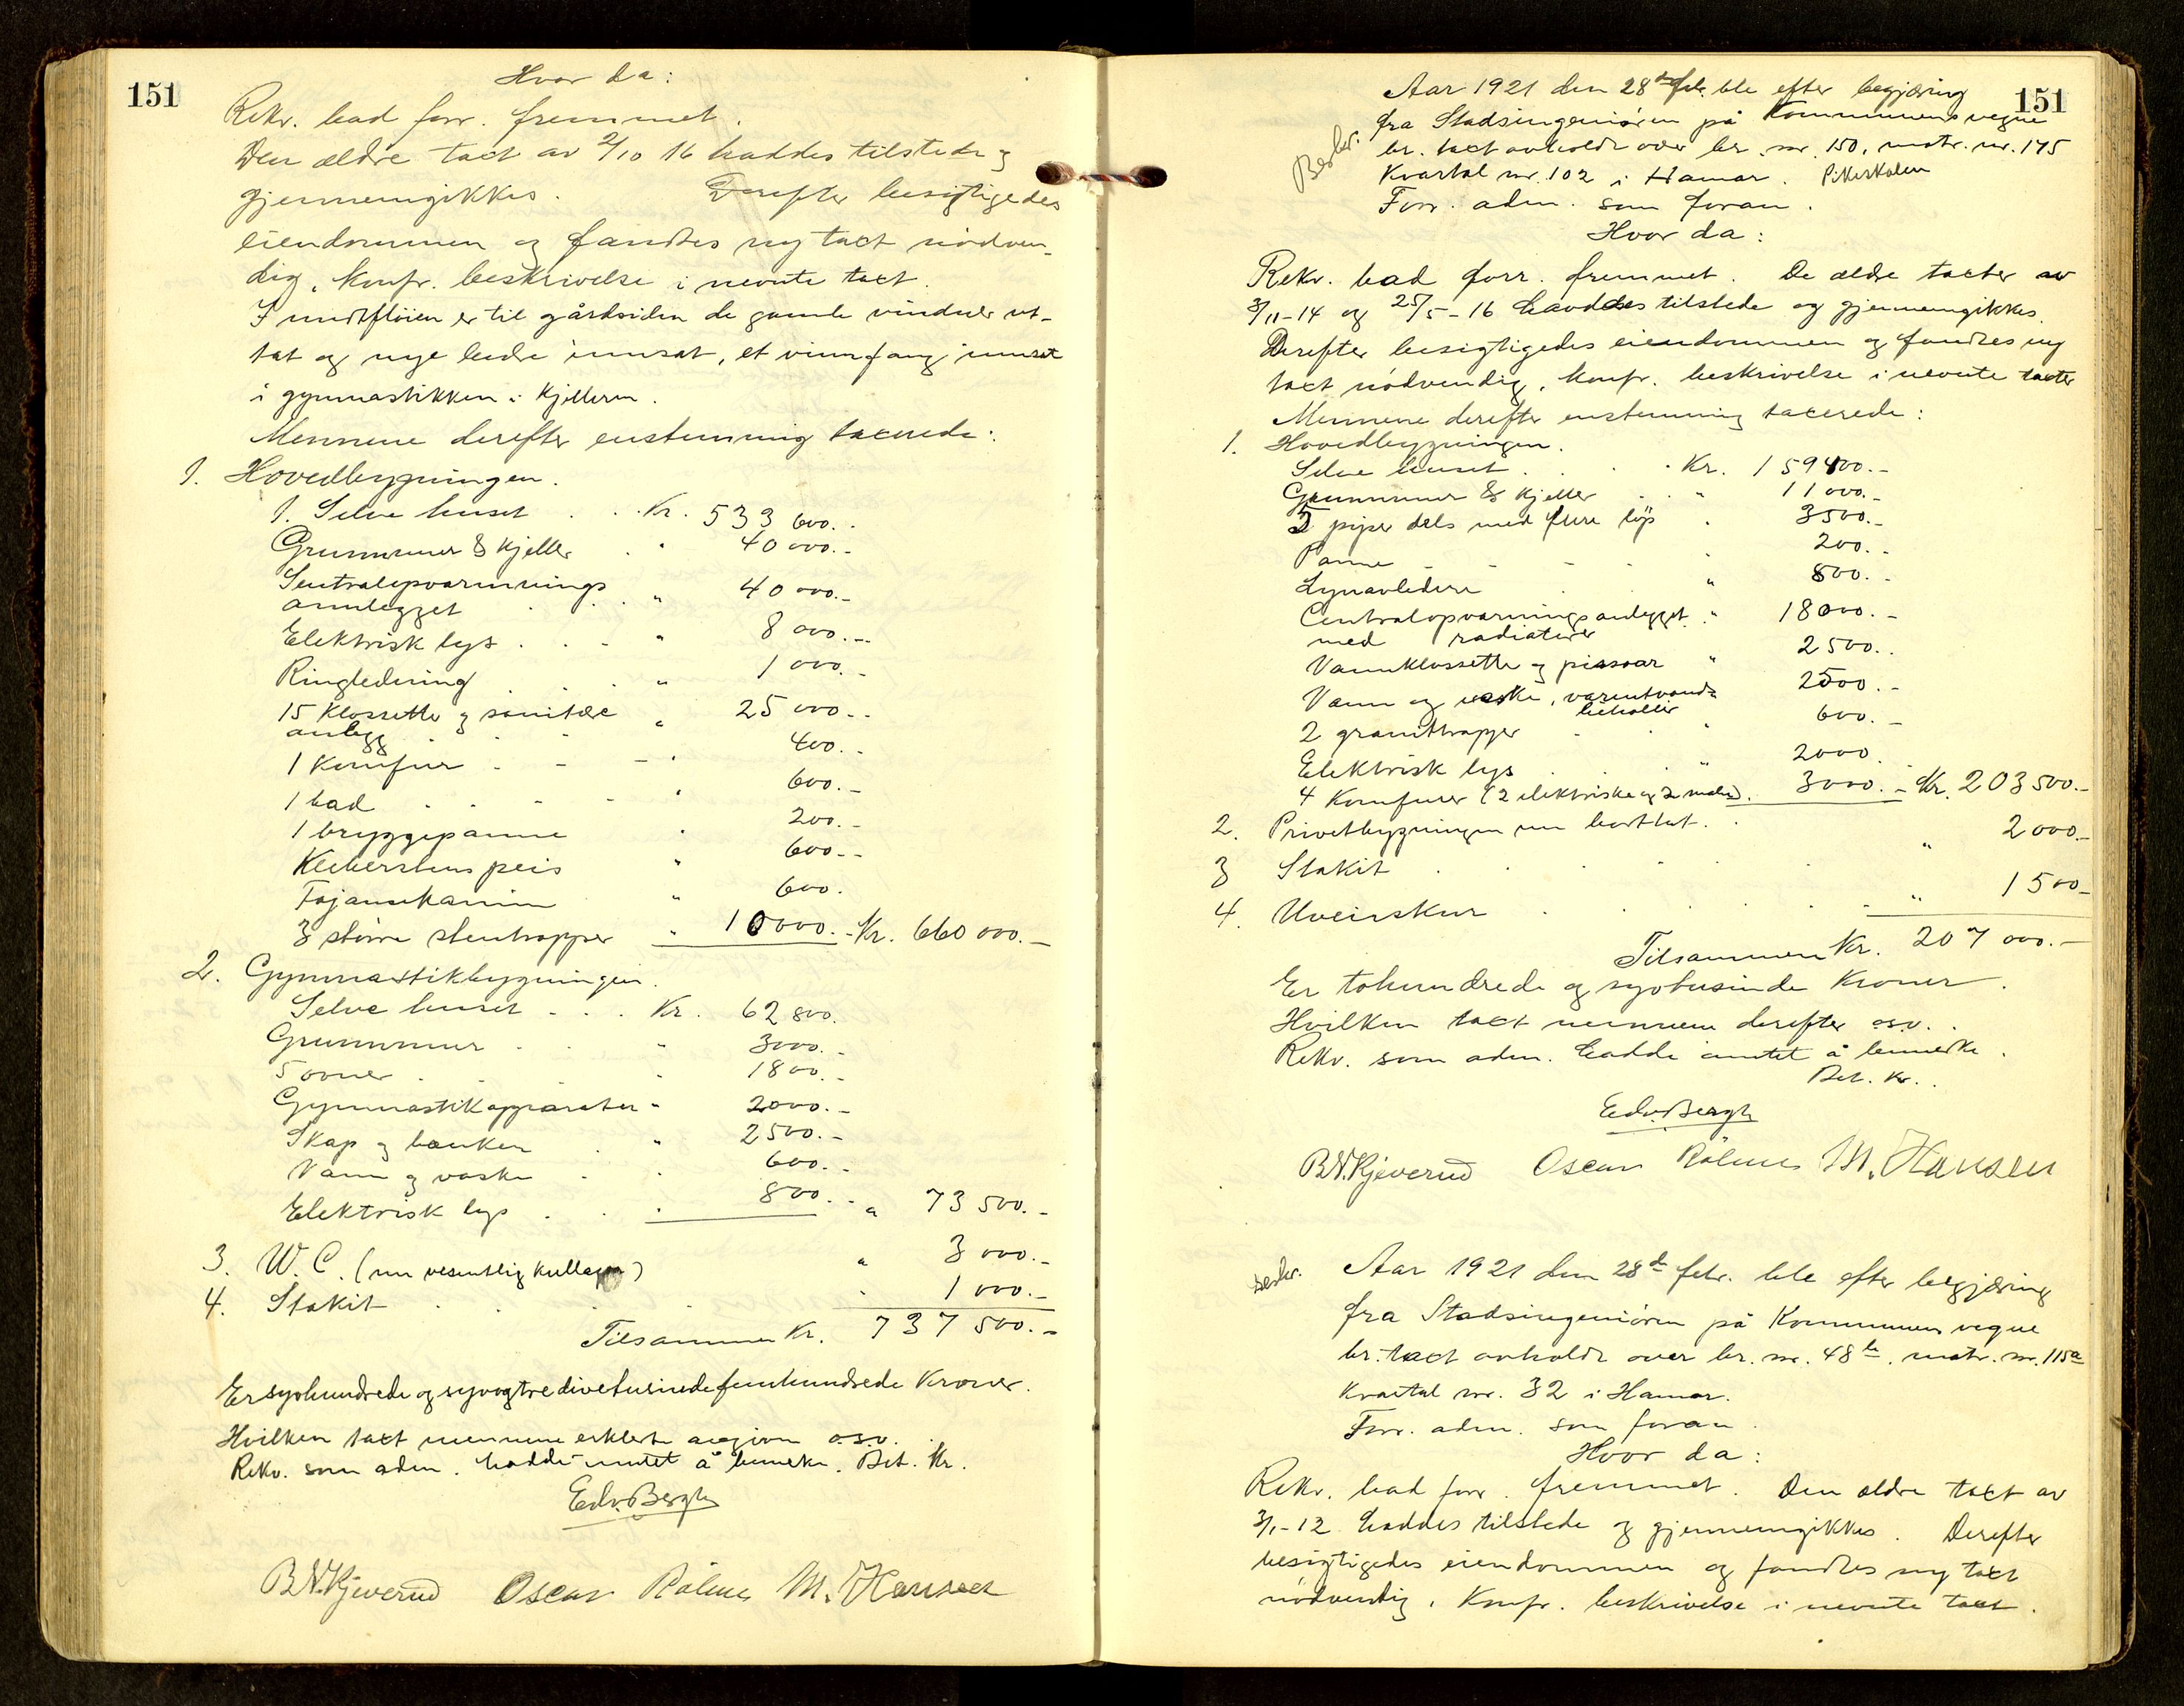 151
Hvor da:
Rekv. bad forr. fremmet.
Den ældre taxt av 2/10 16 haddes tilstede og
gjennemgikkes. Derefter besigtigedes
eiendommen og fandtes ny taxt nödven-
dig, konfr. beskrivelse i nevnte taxt.
I midtflöien er til gårdsiden de gamle vinduer ut-
tat og nye bedre innsat, et vinnfang innsat
i gymnastikken i kjelleren.
Mennene derefter enstemmig taxerede:
1. Hovedbygningen.
1. Selve huset . . Kr. 533 600.-
Grunnmur & kjeller . " 40 000.-
Sentralopvarmnings
annlegget . . " 40 000.-
Elektrisk lys . . - " 8 000.-
Ringledning . . . " 1 000.-
15 Klossetter og sanitære
anlegg . . . " 25 000.-
1 Komfur . - - " 400.-
1 bad . . - - " 600.-
1 bryggepanne " 200.-
Kleberstens peis " 600.-
Fajansekamin " 600.
3 större stentrapper " 10000.- Kr. 660 000.-
2. Gymnastikbygningen.
Selve huset . . . Kr. 62 800.
Grunnmur . . " 3000.-
5 ovner . . . 1800.-
Gymnastikapparater " 2000.-
Skap og benker . " 2500.-
Vann og vaske . . 600.-
Elektrisk lys . . . 800.- " 73 500.-
3. W. C. (nu vesentlig kullager) " 3 000.-
4. Stakit . . . . 1 000.-
Tilsammen Kr. 737 500.-
Er syvhundrede og syvogtredivetusindefemhundrede Kroner.
Hvilken taxt mennene erklerte avgivne o.s.v.
Rekv. som adm. hadde intet å bemerke. Bet. Kr.
Edv. Bergh
B.N.Kjeverud Oscar Rölmes M. Hansen
151
Beskr.
Aar 1921 den 28de febr. ble efter begjæring
fra Stadsingeniören på Kommunens vegne
br. taxt avholdt over br. nr. 150, matr. nr. 175
Kvartal nr. 102 i Hamar. Pikeskolen
Forr. adm. som foran.
Hvor da:
Rekv. bad forr. fremmet. De ældre taxter av
3/11-14 og 25/5-16 havddes tilstede og gjennemgikkes.
Derefter besigtigedes eiendommen og fandtes ny
taxt nödvendig, konfr. beskrivelse i nevnte taxter
Mennene derefter enstemmig taxerede:
1. Hovedbygningen.
Selve huset . . . Kr. 159400.-
Grunnmur & kjeller . . " 11000.-
5 piper dels med flere löp . 3500.-
Panne - - - - 200.-
Lynavledere . " 800.-
Centralopvarmingsanlegget " 18000.-
med radiatorer
Vannklossetter og pissoar " 2500.-
Vann og vaske, varmtvands 2500.-
beholder
2 granittrapper . . 600.-
Elektrisk lys . . " 2000.
4 Komfurer (2 elektriske og 2 andre). 3000.- Kr. 203500.-
2. Privetbygningen nu borttat. .
3 Stakit . . . . " 2 000.-
4. Uveirskur . . . . . " 1 500-
Tilsammen Kr. 207 000.-
Er tohundrede og syvtusinde Kroner.
Hvilken taxt mennene derefter o.s.v. .
Rekv. som adm. hadde intet å bemerke.
Bet. Kr. .
Edv. Bergh
B.N.Kjeverud Oscar Rölmes M. Hansen
beskr.
Aar 1921 den 28de febr. ble efter begjæring
fra Stadsingeniören på Kommunens vegne
br. taxt avholdt over br. nr. 48b. matr. nr. 115a
Kvartal nr. 32 i Hamar.
Forr. adm. som foran.
Hvor da:
Rekv. bad forr. fremmet. Den ældre taxt av
3/1-12 haddes tilstede og gjennemgikkes. Derefter
besigtigedes eiendommen og fandtes ny taxt
nödvendig, konfr. beskrivelse i nevnte taxt.